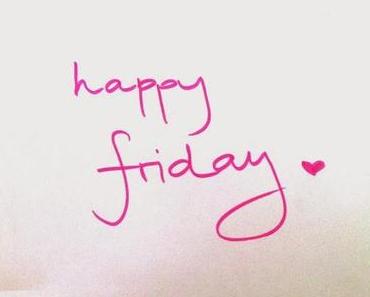 happy
friday